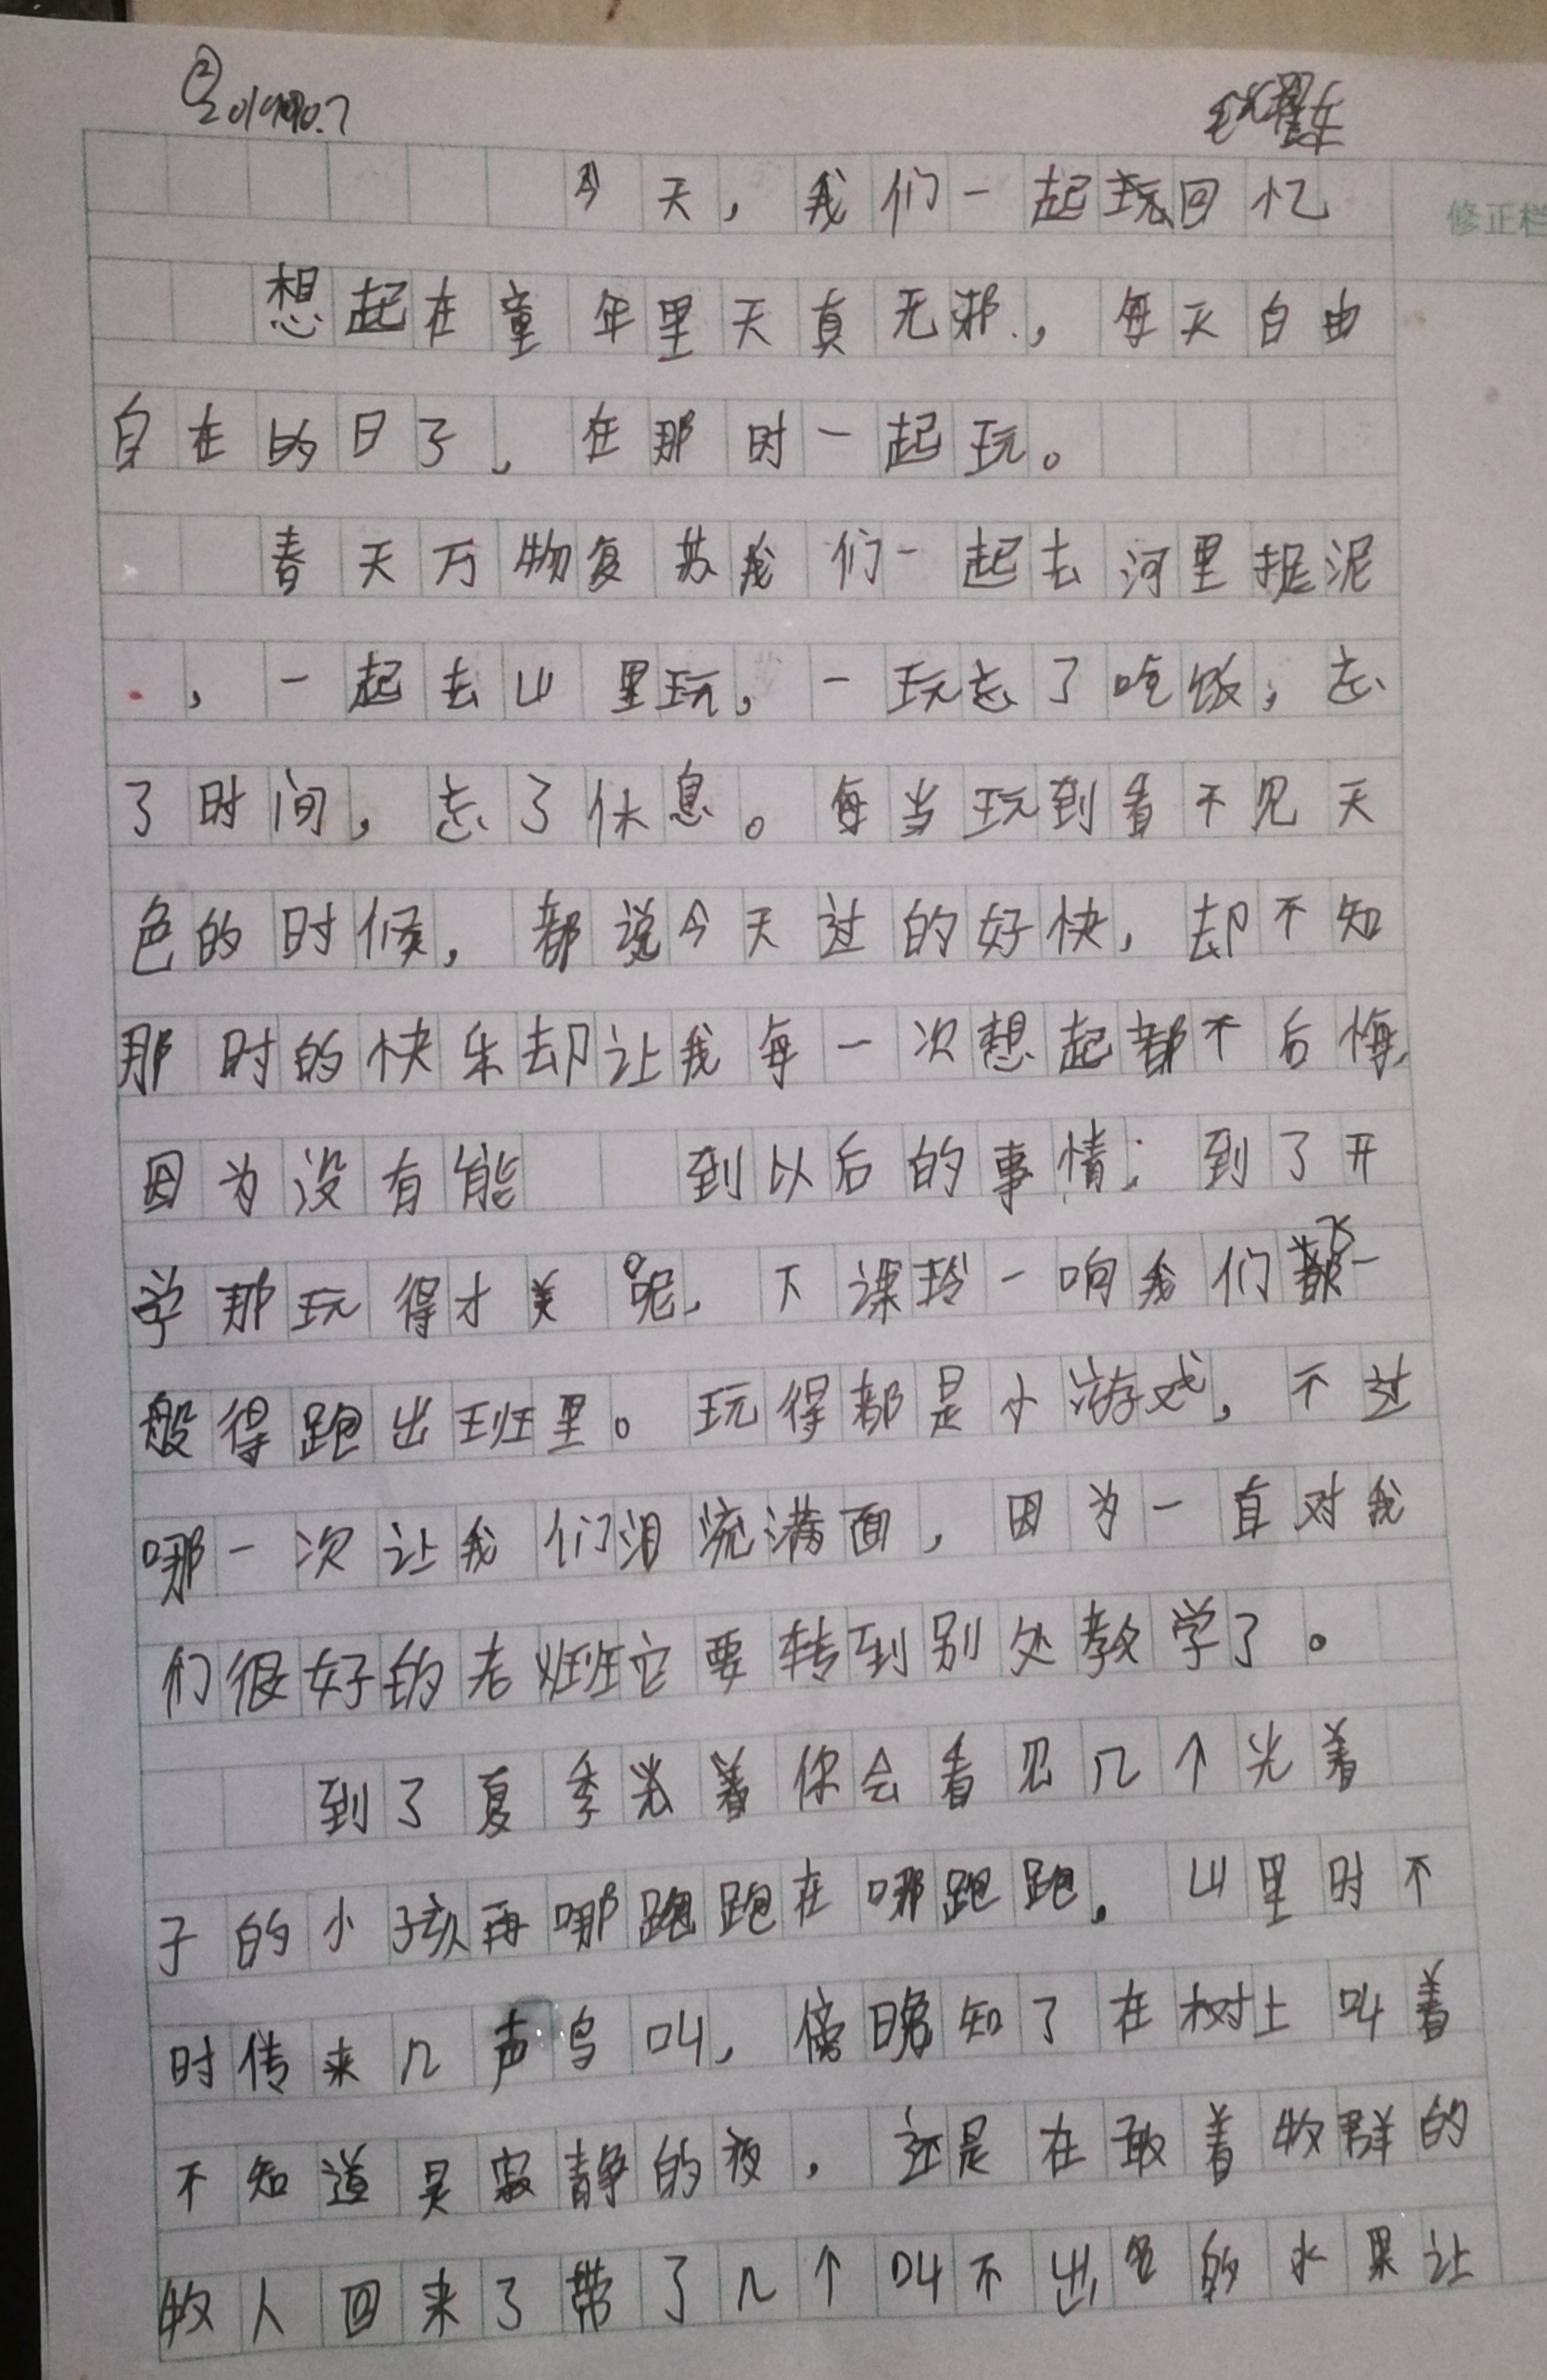 ② 2019.10.7
今天，我们一起玩回忆
修正栏
想起在童年里天真无邪，每天自由
自在的日子，在那时一起玩。
春天万物复苏我们一起去河里挖泥
，一起去山里玩，一玩忘了吃饭，忘
了时间，忘了休息。每当玩到看不见天
色的时候，都说今天过的好快，却不知
那时的快乐却让我每一次想起都不后悔，
因为没有能 到以后的事情；到了开
学那玩得才美呢，下课玲一响我们都飞一
般得跑出班里。玩得都是小游戏，不过
哪一次让我们泪流满面，因为一直对我
们很好的老班它要转到别处教学了。
到了夏季光着你会看见几个光着
子的小孩再哪跑跑在哪跑跑。山里时不
时传来几声鸟叫，傍晚知了在树上叫着
不知道是寂静的夜，还是在敢着牧群的
牧人回来了带了几个叫不出名的水果让